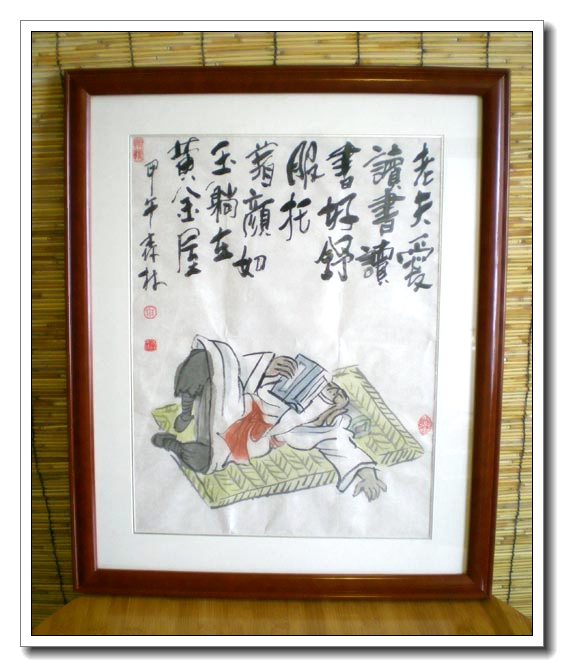 老夫愛
讀書讀
書好舒
服托
著顏如
玉躺在
黃金屋
甲午森林